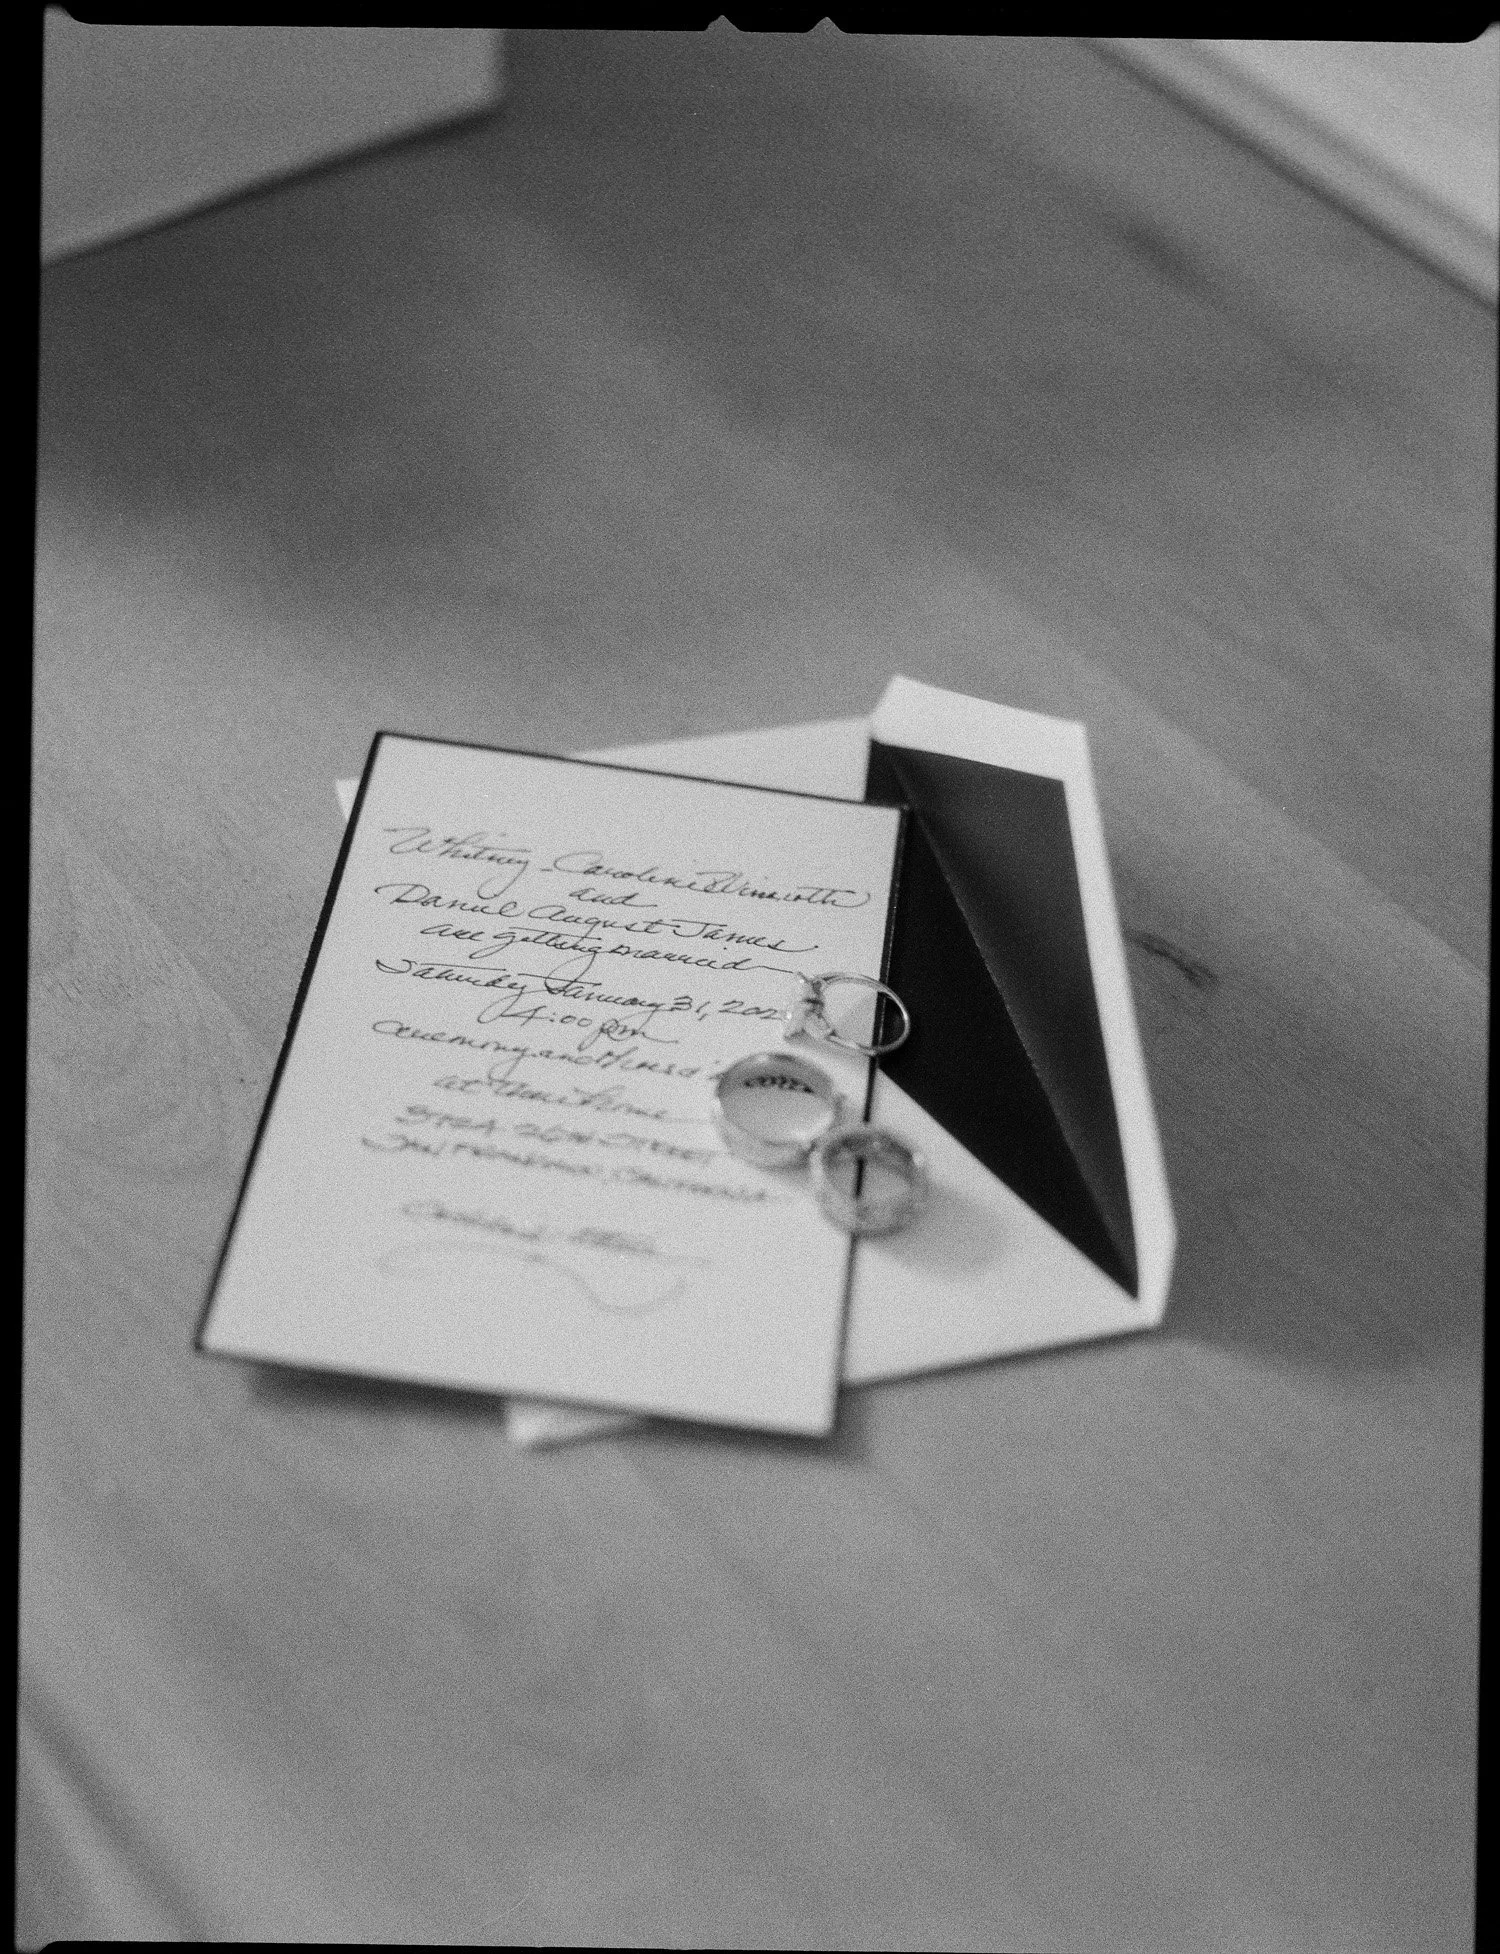 Whitney Caroline
and
Daniel August James
are getting married
Saturday January 31, 202
4:00 pm
Ceremony and
at their home
26th Street
San Francisco, California